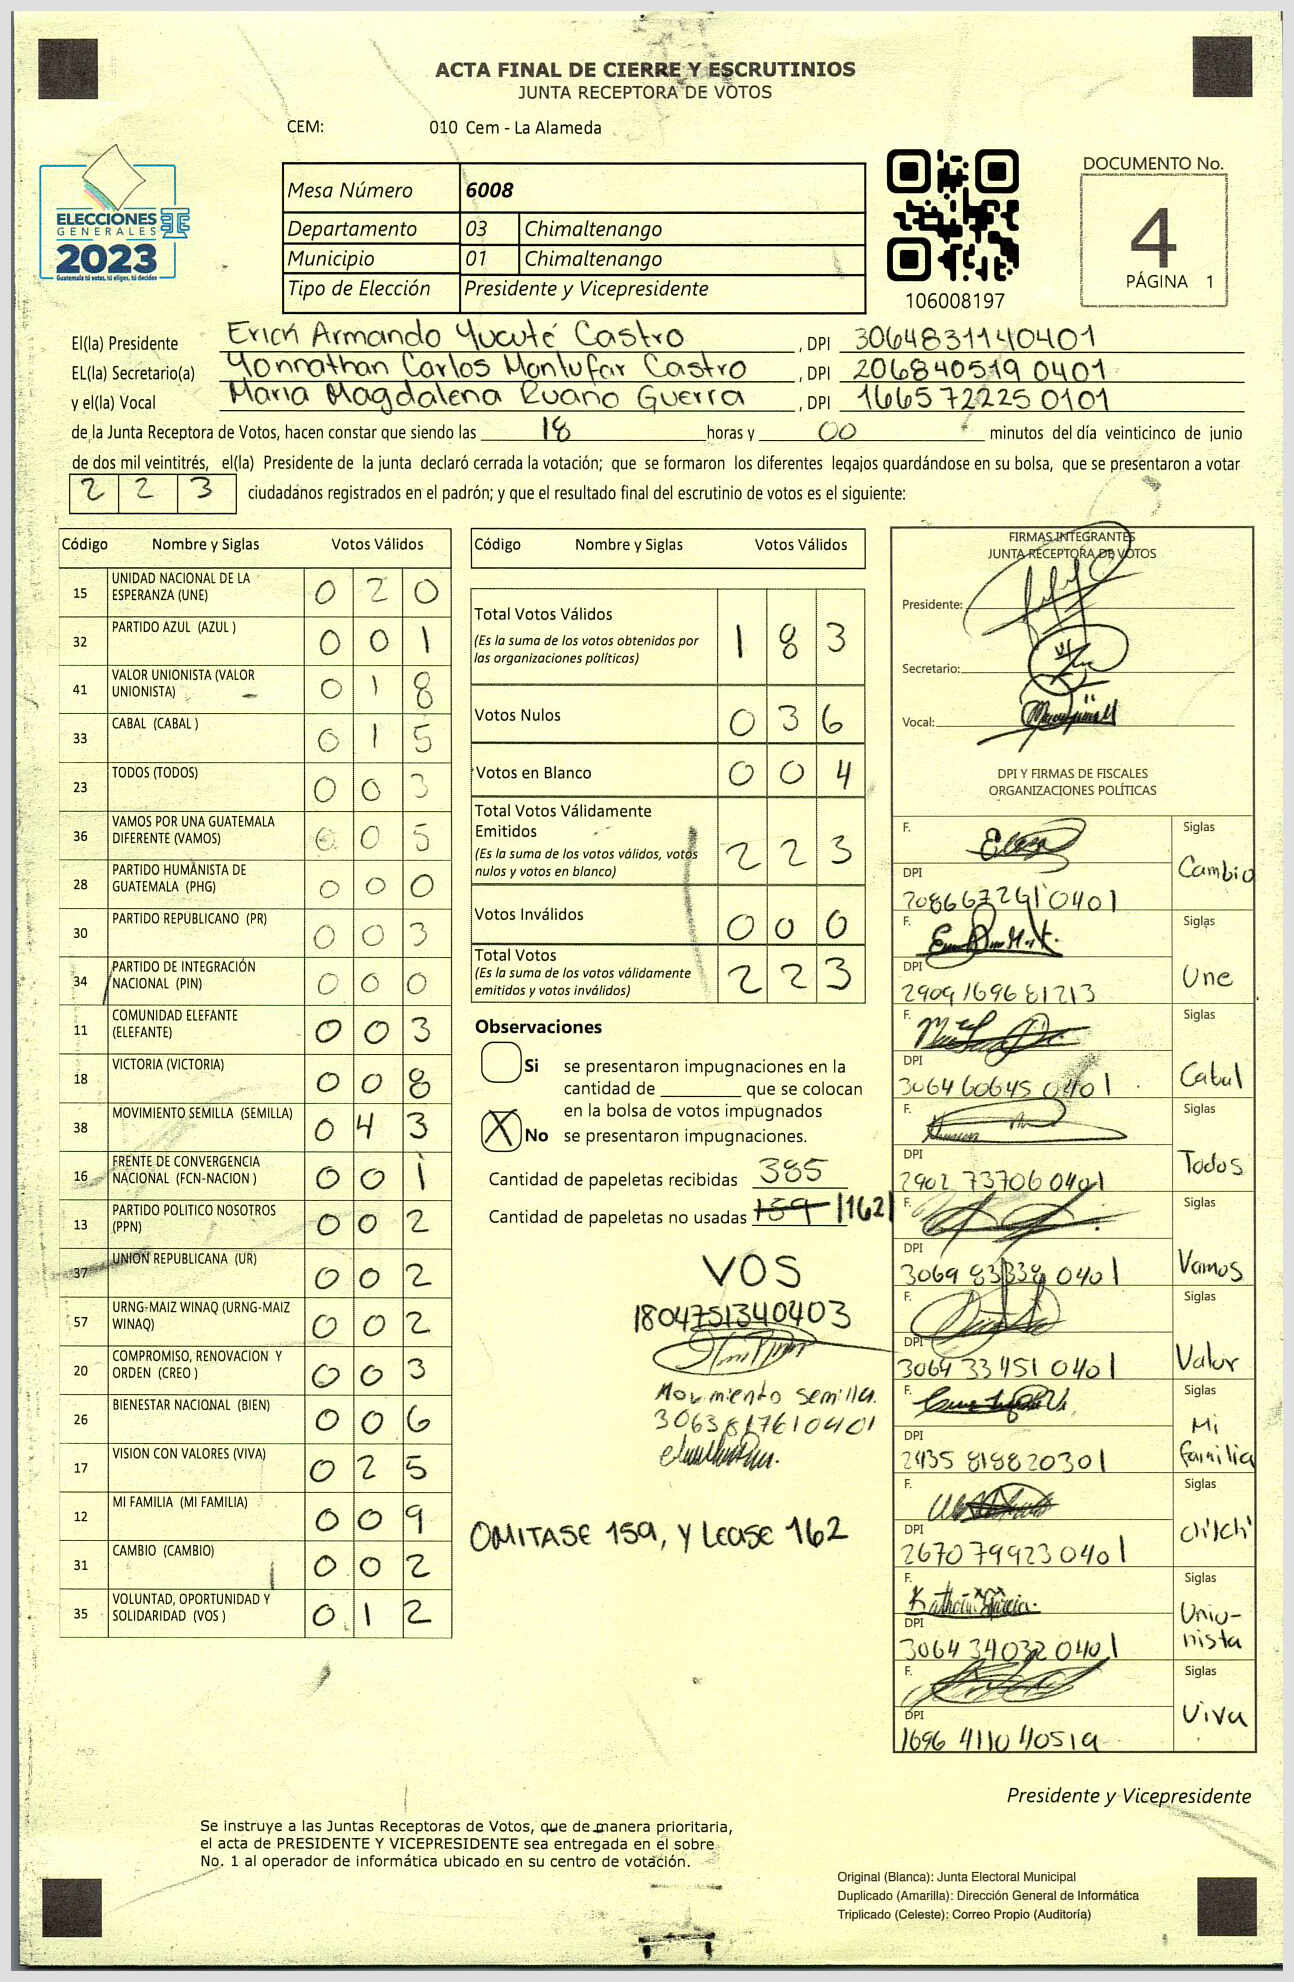 ACTA FINAL DE CIERRE Y ESCRUTINIOS
JUNTA RECEPTORA DE VOTOS
CEM: 010 Cem - La Alameda
ELECCIONES
GENERALES
2023
Guatemala tú votas, tú eliges, tú decides
Mesa Número 6008
Departamento 03 Chimaltenango
Municipio 01 Chimaltenango
Tipo de Elección Presidente y Vicepresidente
106008197
DOCUMENTO No.
4
PÁGINA 1
El(la) Presidente Erick Armando Yucuté Castro, DPI 3064831140401
EL(la) Secretario(a) Yonnathan Carlos Monlufar Castro, DPI 2068405190401
y el(la) Vocal Maria Magdalena Ruano Guerra, DPI 1665722250101
de la Junta Receptora de Votos, hacen constar que siendo las 18 horas y 00 minutos del día veinticinco de junio
de dos mil veintitrés, el(la) Presidente de la junta declaró cerrada la votación; que se formaron los diferentes legajos guardándose en su bolsa, que se presentaron a votar
2 2 3 ciudadanos registrados en el padrón; y que el resultado final del escrutinio de votos es el siguiente:
Código Nombre y Siglas Votos Válidos
15 UNIDAD NACIONAL DE LA ESPERANZA (UNE) 0 2 0
32 PARTIDO AZUL (AZUL ) 0 0 1
41 VALOR UNIONISTA (VALOR UNIONISTA) 0 1 8
33 CABAL (CABAL ) 0 1 5
23 TODOS (TODOS) 0 0 3
36 VAMOS POR UNA GUATEMALA DIFERENTE (VAMOS) 0 0 5
28 PARTIDO HUMANISTA DE GUATEMALA (PHG) 0 0 0
30 PARTIDO REPUBLICANO (PR) 0 0 3
34 PARTIDO DE INTEGRACIÓN NACIONAL (PIN) 0 0 0
11 COMUNIDAD ELEFANTE (ELEFANTE) 0 0 3
18 VICTORIA (VICTORIA) 0 0 8
38 MOVIMIENTO SEMILLA (SEMILLA) 0 4 3
16 FRENTE DE CONVERGENCIA NACIONAL (FCN-NACION ) 0 0 1
13 PARTIDO POLITICO NOSOTROS (PPN) 0 0 2
37 UNION REPUBLICANA (UR) 0 0 2
57 URNG-MAIZ WINAQ (URNG-MAIZ WINAQ) 0 0 2
20 COMPROMISO, RENOVACION Y ORDEN (CREO ) 0 0 3
26 BIENESTAR NACIONAL (BIEN) 0 0 6
17 VISION CON VALORES (VIVA) 0 2 5
12 MI FAMILIA (MI FAMILIA) 0 0 9
31 CAMBIO (CAMBIO) 0 0 2
35 VOLUNTAD, OPORTUNIDAD Y SOLIDARIDAD (VOS ) 0 1 2
Código Nombre y Siglas Votos Válidos
Total Votos Válidos 1 8 3
(Es la suma de los votos obtenidos por
las organizaciones políticas)
Votos Nulos 0 3 6
Votos en Blanco 0 0 4
Total Votos Válidamente
Emitidos 2 2 3
(Es la suma de los votos válidos, votos
nulos y votos en blanco)
Votos Inválidos 0 0 0
Total Votos 2 2 3
(Es la suma de los votos válidamente
emitidos y votos inválidos)
Observaciones
Si se presentaron impugnaciones en la
cantidad de ________ que se colocan
en la bolsa de votos impugnados
X No se presentaron impugnaciones.
Cantidad de papeletas recibidas 385
Cantidad de papeletas no usadas 159 |162|
VOS
1804751340403
Movimiento semilla.
3063817610401
OMITASE 159, Y LEASE 162
FIRMAS INTEGRANTES
JUNTA RECEPTORA DE VOTOS
Presidente:
Secretario:
Vocal:
DPI Y FIRMAS DE FISCALES
ORGANIZACIONES POLÍTICAS
F. Siglas
Cambio
DPI
2086672610401
F. Siglas
Une
DPI
2909169681213
F. Siglas
Cabal
DPI
3064606450401
F. Siglas
Todos
DPI
2902737060401
F. Siglas
Vamos
DPI
3069833380401
F. Siglas
Valor
DPI
3064334510401
F. Siglas
Mi
familia
DPI
2435818820301
F. Siglas
DPI
2670799230401
F. Siglas
Unio-
nista
DPI
3064340320401
F. Siglas
Viva
DPI
1696411040519
Presidente y Vicepresidente
Se instruye a las Juntas Receptoras de Votos, que de manera prioritaria,
el acta de PRESIDENTE Y VICEPRESIDENTE sea entregada en el sobre
No. 1 al operador de informática ubicado en su centro de votación.
Original (Blanca): Junta Electoral Municipal
Duplicado (Amarilla): Dirección General de Informática
Triplicado (Celeste): Correo Propio (Auditoría)